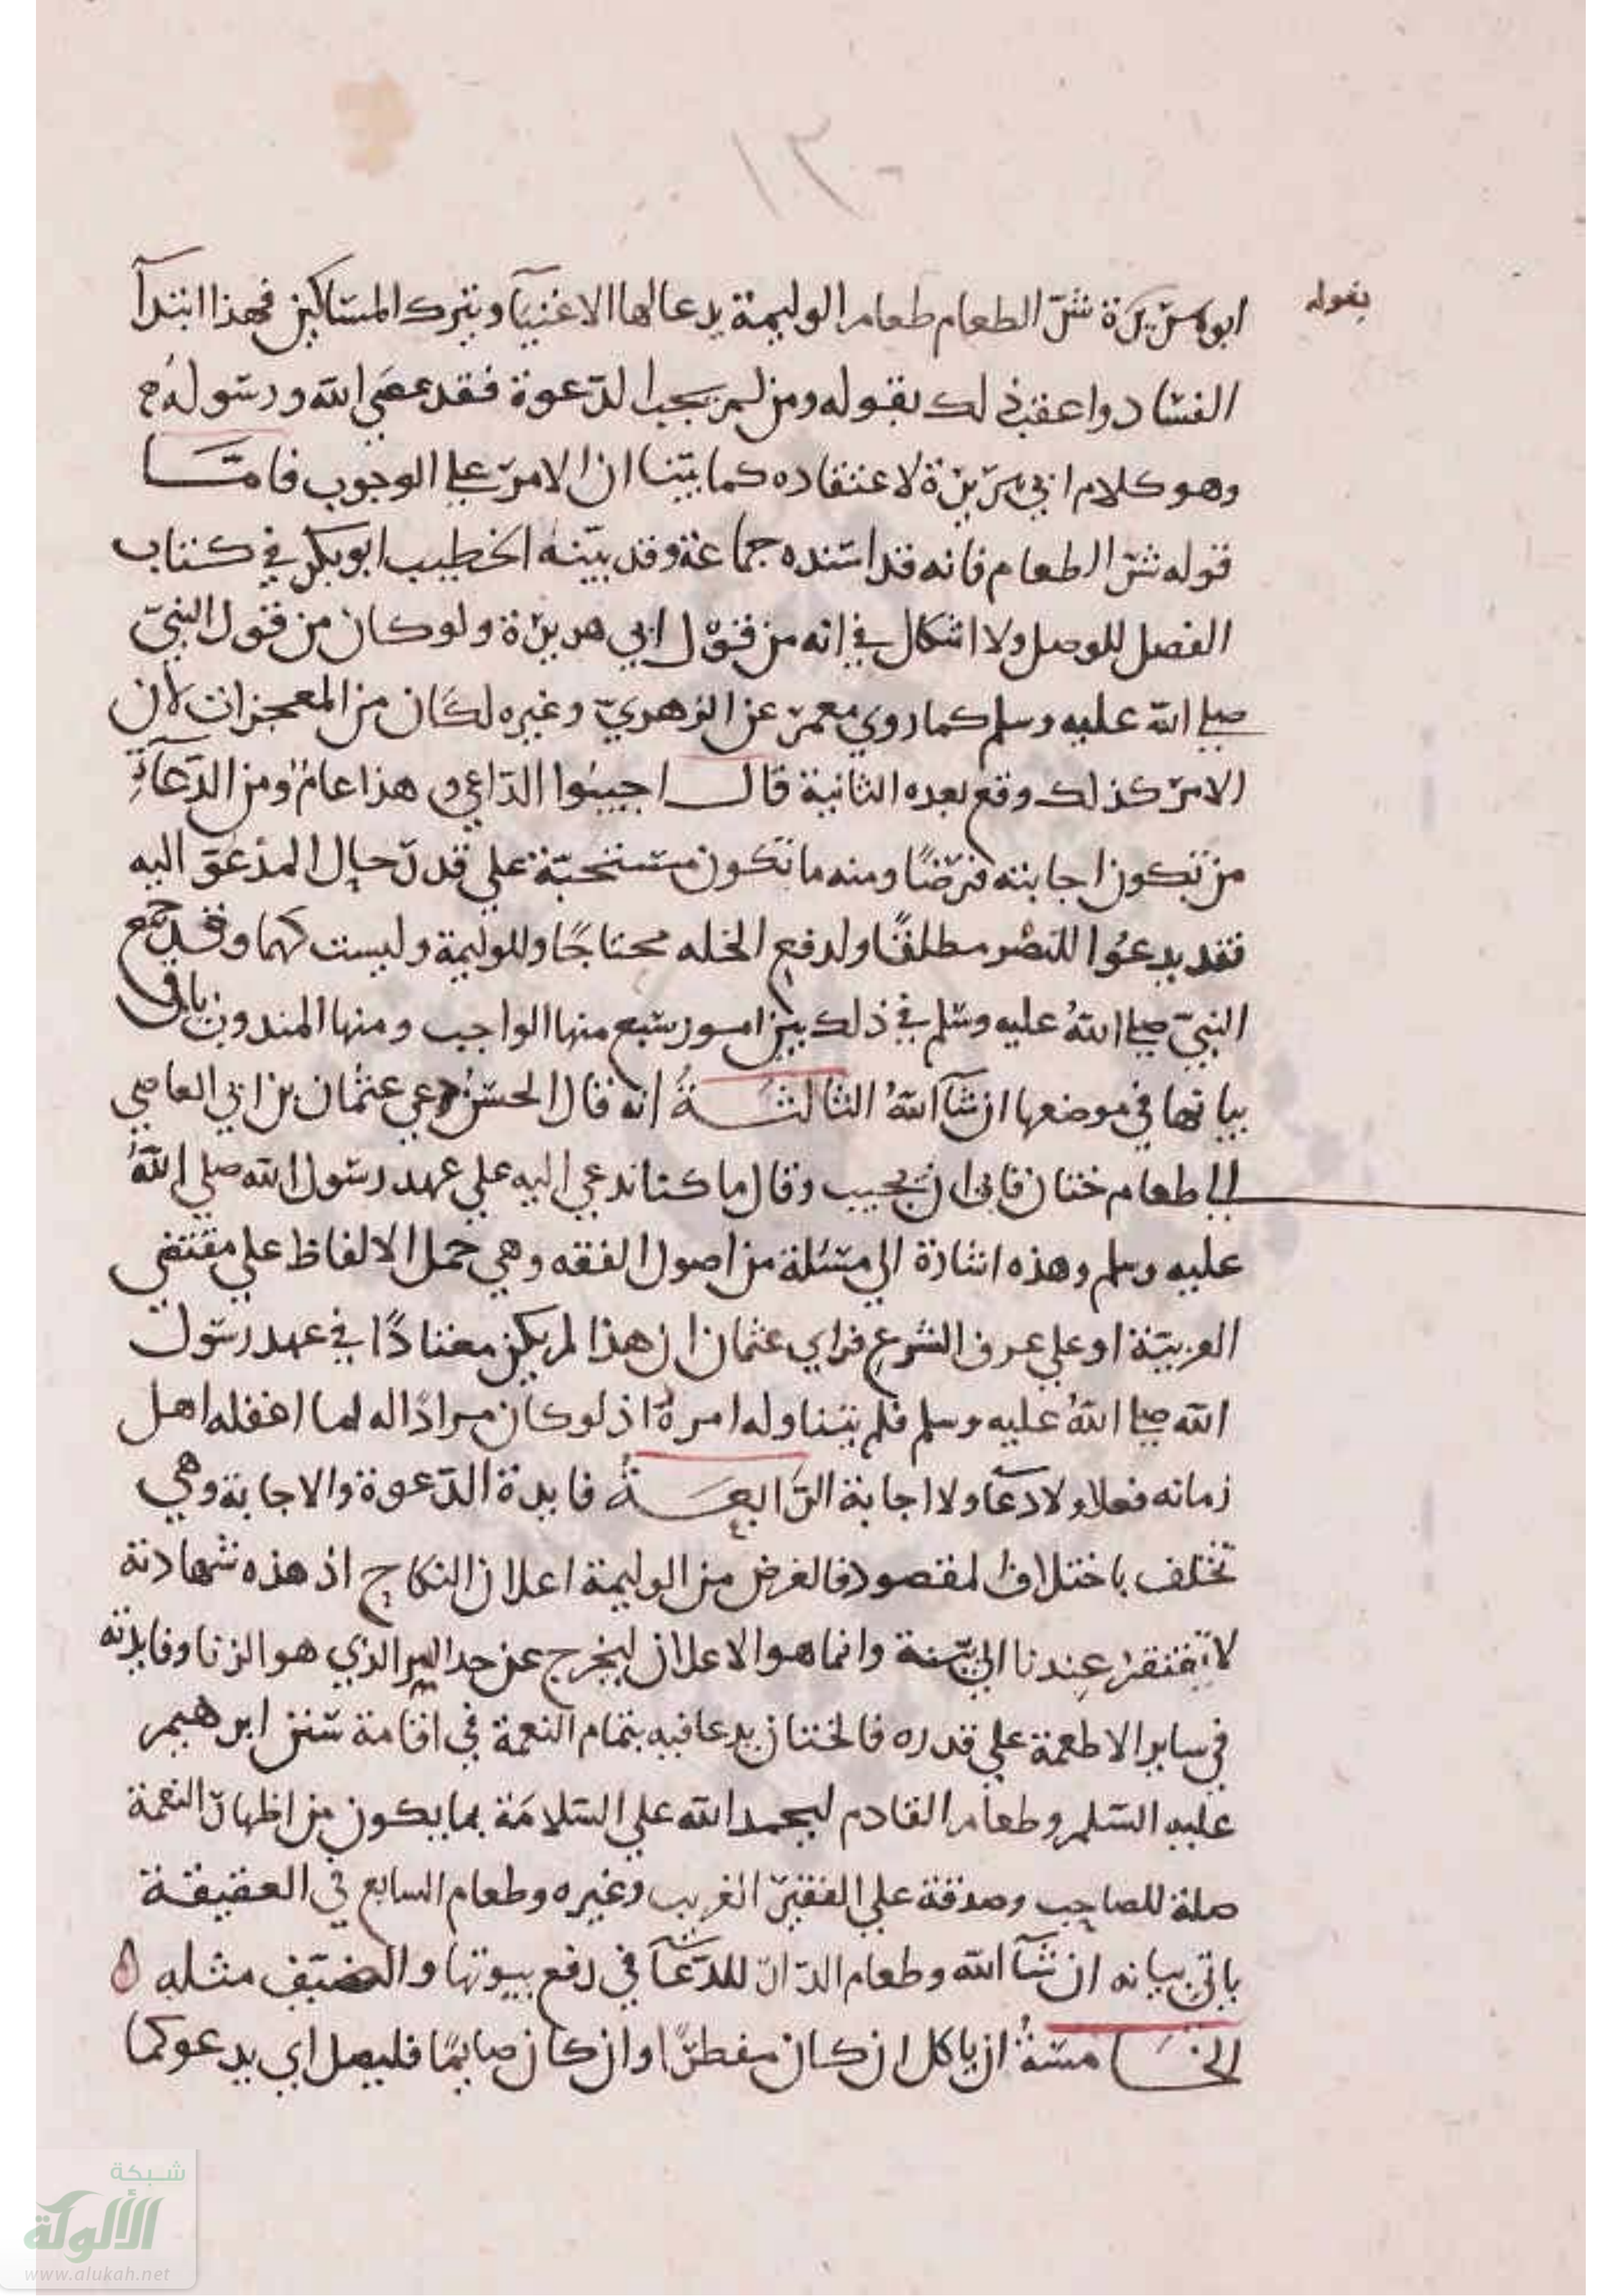 ١٣٠
بقوله
ابو هريرة شر الطعام طعام الوليمة يدعا لها الاغنيآ ويترك المساكين فهذا ابتدآ
الفساد واعقب ذلك بقوله ومن لم يجب الدعوة فقد عصي الله ورسوله
وهو كلام ابي هريرة لاعتقاده كما بينا ان الامر علي الوجوب فامّا
قوله شر الطعام فانه قد اسنده جماعة وقد بينه الخطيب ابو بكر في كتاب
الفصل للوصل ولا اشكال في انه من قول ابي هريرة ولو كان من قول النبيّ
صلي الله عليه وسلم كما روي معمر عن الزهريّ وغيره لكان من المعجزات لان
الامر كذلك وقع بعده الثانية قال اجيبُوا الداعي هذا عامٌ ومن الدعآة
من تكون اجابته فرضًا ومنه ما تكون مستحبّة علي قدر حال المدعوّ اليه
فقد يدعُوا للنصْر مطلقًا ولدفع الخله محتاجًا وللوليمة وليست كهما وقد جمع
النبيّ صلي اللهُ عليه وسلم في ذلك بين امور سبع منها الواجب ومنها المندوب ياتي
بيانها في موضعها ان شآ اللهُ الثالثةُ انه قال الحسنُ دعي عثمان بن ابي العاصي
الي طعام ختان فابي ان يجيب وقال ما كنا ندعي اليه علي عهد رسول الله صلي اللهُ
عليه وسلم وهذه اشارة الي مسئلة من اصول الفقه وهي حمل الالفاظ علي مقتضي
العربيّة او علي عرف الشرع فراي عثمان ان هذا لم يكن معتادًا في عهد رسول
الله صلي اللهُ عليه وسلم فلم يتناوله امرهُ اذ لو كان مرادًا له لما اغفله اهل
زمانه فعلا ولا دعآ ولا اجابة الرابعةُ فايدة الدعوة والاجابة وهي
تختلف باختلاف المقصود فالغرض من الوليمة اعلان النكاح اذ هذه شهادته
لا تفتقر عندنا الي بيّنة وانما هو الاعلان ليخرج عن حد السر الذي هو الزنا وفايدته
في ساير الاطعمة علي قدره فالختان يدعا فيه بتمام النعمة في اقامة سنن ابرهيم
عليه السلم وطعام القادم ليحمد الله علي السلامة بما يكون من اظهار النعمة
صلة للصاحب وصدقة علي الفقير الغريب وغيره وطعام السابع في العقيقة
ياتي بيانه ان شآ الله وطعام الدار للدعآ في رفع بيوتها والضيف مثله ه
الخامسةُ ان ياكل ان كان مفطرًا وان كان صايمًا فليصل اي يدعو كما
شبكة
الألوكة
www.alukah.net